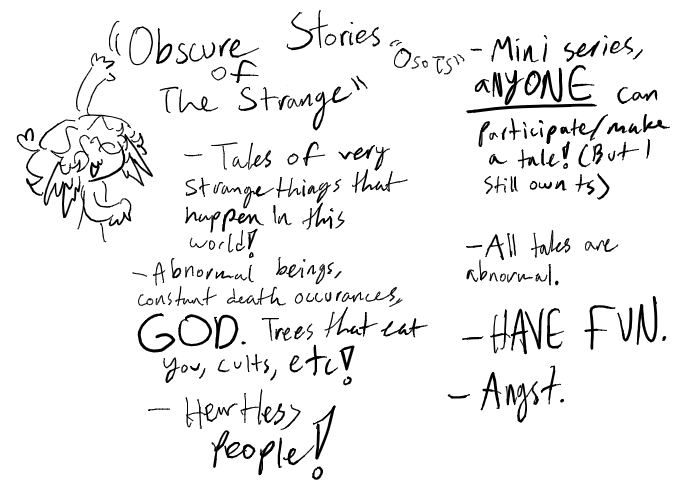 "Obscure Stories
of
The Strange"
"OsoTS"
- Tales of very
strange things that
happen in this
world!
- Abnormal beings,
constant death occurances,
GOD. Trees that eat
you, cults, etc!
- Heartless
People!
- Mini series,
aNYONE can
participate/make
a tale! (But I
still own ts)
- All tales are
abnormal.
- HAVE FUN.
- Angst.